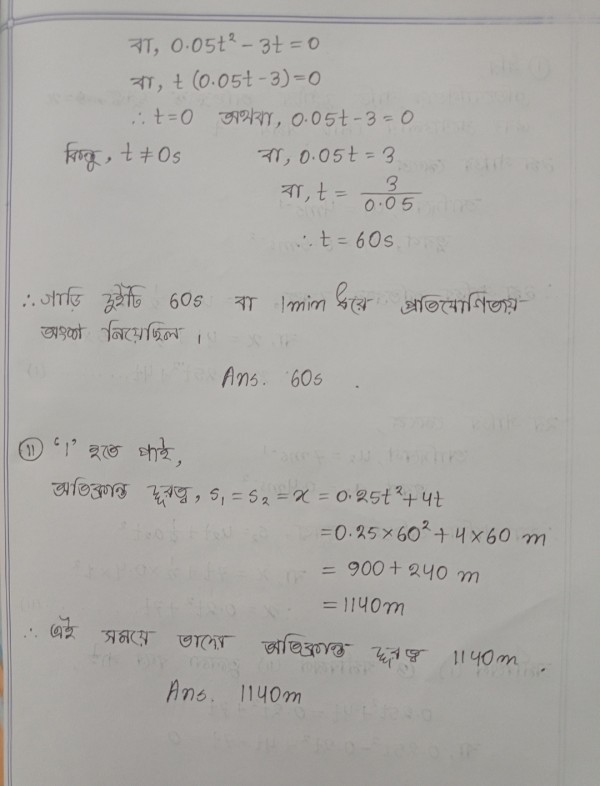 বা, 0.05t² - 3t = 0
বা, t (0.05t - 3) = 0
∴ t = 0 অথবা, 0.05t - 3 = 0
কিন্তু, t ≠ 0s বা, 0.05t = 3
বা, t = 3/0.05
∴ t = 60s
∴ গাড়ি দুইটি 60s বা 1min ধরে প্রতিযোগিতায়
অংশ নিয়েছিল।
Ans. 60s.
(ii) 'i' হতে পাই,
অতিক্রান্ত দূরত্ব, s₁ = s₂ = x = 0.25t² + 4t
= 0.25 × 60² + 4 × 60 m
= 900 + 240 m
= 1140m
∴ এই সময়ে তাদের অতিক্রান্ত দূরত্ব 1140m.
Ans. 1140m